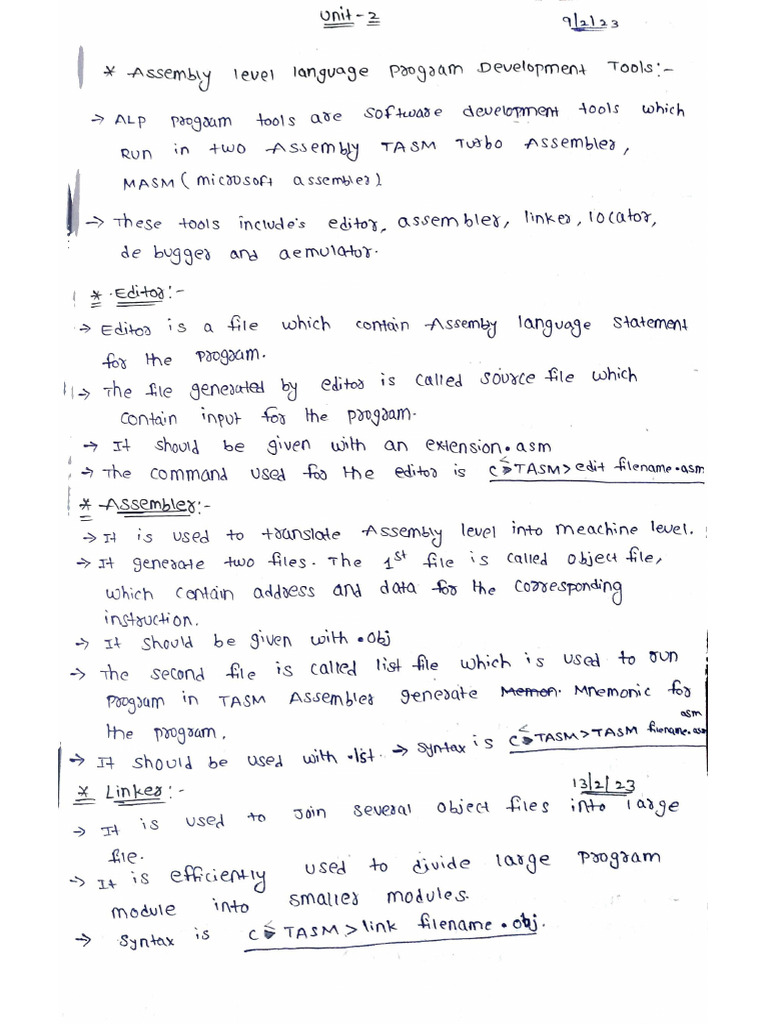 Unit - 2
9/2/23
* Assembly level language Program Development Tools:-
→ ALP program tools are software development tools which
Run in two Assembly TASM Turbo Assembler,
MASM (microsoft assembler)
→ These tools include's editor, assembler, linker, locator,
de bugger and aemulator.
* Editor:-
→ Editor is a file which contain Assemby language statement
for the program.
→ The file generated by editor is called source file which
contain input for the program.
→ It should be given with an extension .asm
→ The command used for the editor is C:>TASM>edit filename.asm
* Assembler:-
→ It is used to translate Assembly level into meachine level.
→ It generate two files. The 1st file is called object file,
which contain address and data for the corresponding
instruction.
→ It should be given with .obj
→ The second file is called list file which is used to run
program in TASM Assembler generate Mnemonic for
the program.
asm
→ It should be used with .list. → Syntax is C:>TASM>TASM filename.asm
* Linker:-
13/2/23
→ It is used to Join several object files into large
file.
→ It is efficiently used to divide large program
module into smaller modules.
→ Syntax is C:>TASM>link filename.obj.